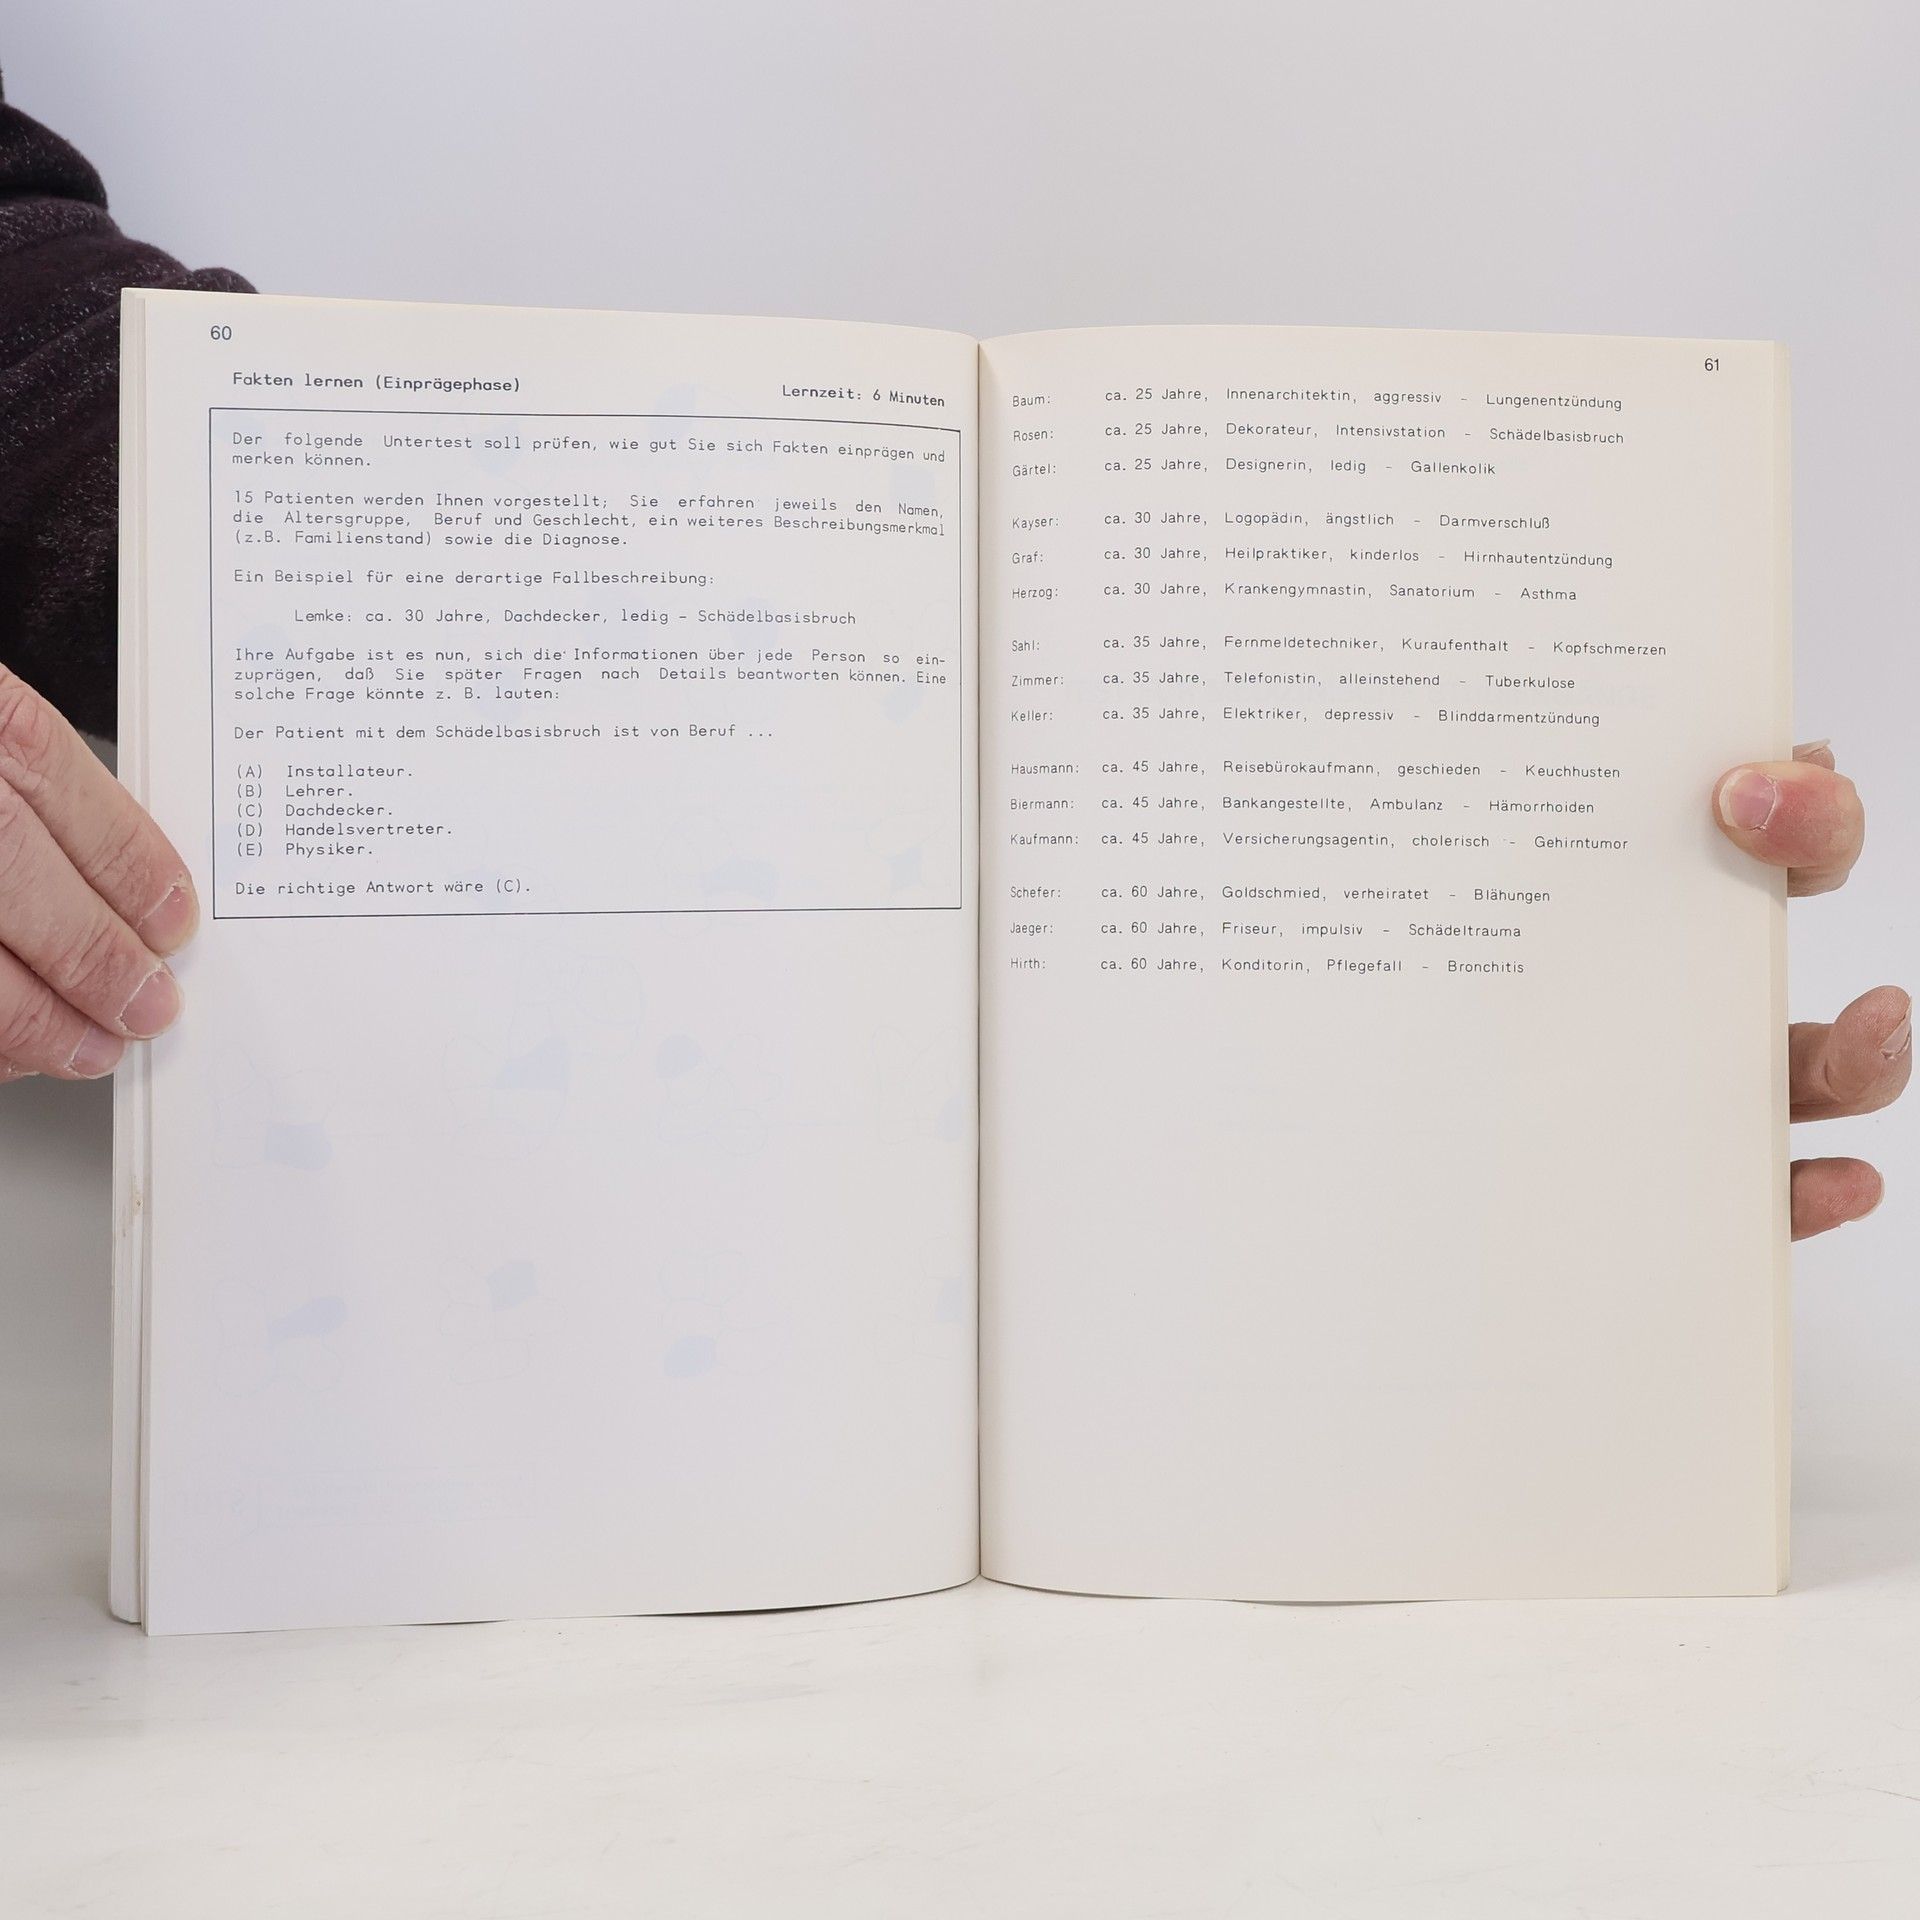 60
Fakten lernen (Einprägephase)
Lernzeit: 6 Minuten
Der folgende Untertest soll prüfen, wie gut Sie sich Fakten einprägen und
merken können.
15 Patienten werden Ihnen vorgestellt; Sie erfahren jeweils den Namen,
die Altersgruppe, Beruf und Geschlecht, ein weiteres Beschreibungsmerkmal
(z.B. Familienstand) sowie die Diagnose.
Ein Beispiel für eine derartige Fallbeschreibung:
Lemke: ca. 30 Jahre, Dachdecker, ledig – Schädelbasisbruch
Ihre Aufgabe ist es nun, sich die Informationen über jede Person so ein-
zuprägen, daß Sie später Fragen nach Details beantworten können. Eine
solche Frage könnte z. B. lauten:
Der Patient mit dem Schädelbasisbruch ist von Beruf ...
(A) Installateur.
(B) Lehrer.
(C) Dachdecker.
(D) Handelsvertreter.
(E) Physiker.
Die richtige Antwort wäre (C).
61
Baum: ca. 25 Jahre, Innenarchitektin, aggressiv – Lungenentzündung
Rosen: ca. 25 Jahre, Dekorateur, Intensivstation – Schädelbasisbruch
Gärtel: ca. 25 Jahre, Designerin, ledig – Gallenkolik
Kayser: ca. 30 Jahre, Logopädin, ängstlich – Darmverschluß
Graf: ca. 30 Jahre, Heilpraktiker, kinderlos – Hirnhautentzündung
Herzog: ca. 30 Jahre, Krankengymnastin, Sanatorium – Asthma
Sahl: ca. 35 Jahre, Fernmeldetechniker, Kuraufenthalt – Kopfschmerzen
Zimmer: ca. 35 Jahre, Telefonistin, alleinstehend – Tuberkulose
Keller: ca. 35 Jahre, Elektriker, depressiv – Blinddarmentzündung
Hausmann: ca. 45 Jahre, Reisebürokaufmann, geschieden – Keuchhusten
Biermann: ca. 45 Jahre, Bankangestellte, Ambulanz – Hämorrhoiden
Kaufmann: ca. 45 Jahre, Versicherungsagentin, cholerisch – Gehirntumor
Schefer: ca. 60 Jahre, Goldschmied, verheiratet – Blähungen
Jaeger: ca. 60 Jahre, Friseur, impulsiv – Schädeltrauma
Hirth: ca. 60 Jahre, Konditorin, Pflegefall – Bronchitis